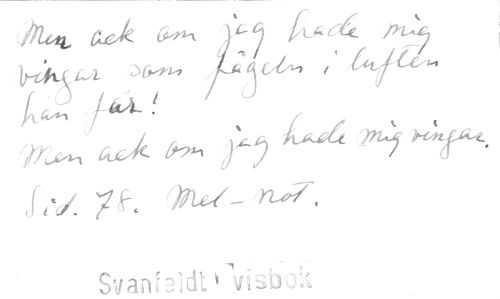 Men ack om jag hade mig
vingar som fågeln i luften
han far!
Men ack om jag hade mig vingar.
Sid. 78. Mel-not.
Svanfeldt' visbok